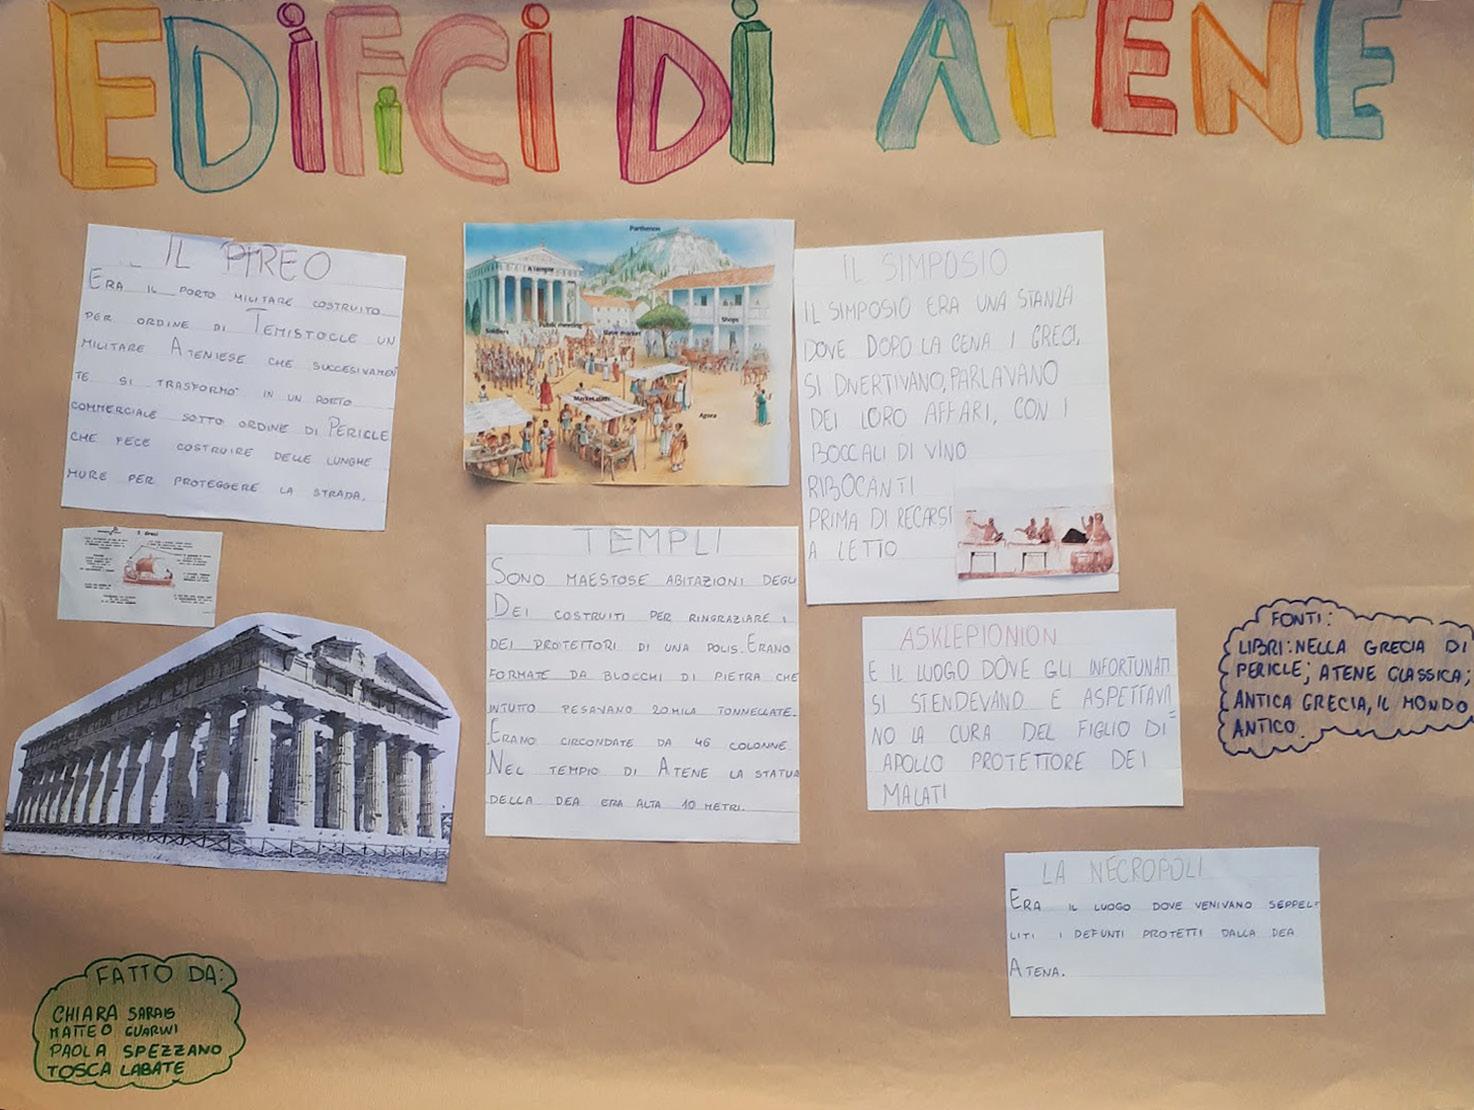 EDIFICI DI ATENE
IL PIREO
ERA IL PORTO MILITARE COSTRUITO
PER ORDINE DI TEMISTOCLE UN
MILITARE ATENIESE CHE SUCCESIVAMEN
TE SI TRASFORMO' IN UN PORTO
COMMERCIALE SOTTO ORDINE DI PERICLE
CHE FECE COSTRUIRE DELLE LUNGHE
MURE PER PROTEGGERE LA STRADA.
Parthenon
A temple
Soldiers
Public meeting
Slave market
Shops
Market stalls
Agora
IL SIMPOSIO
IL SIMPOSIO ERA UNA STANZA
DOVE DOPO LA CENA I GRECI,
SI DIVERTIVANO, PARLAVANO
DEI LORO AFFARI, CON I
BOCCALI DI VINO
RIBOCANTI
PRIMA DI RECARSI
A LETTO
I Greci
TEMPLI
SONO MAESTOSE ABITAZIONI DEGLI
DEI COSTRUITI PER RINGRAZIARE I
DEI PROTETTORI DI UNA POLIS. ERANO
FORMATE DA BLOCCHI DI PIETRA CHE
INTUTTO PESAVANO 20MILA TONNELLATE.
ERANO CIRCONDATE DA 46 COLONNE.
NEL TEMPIO DI ATENE LA STATUA
DELLA DEA ERA ALTA 10 METRI.
ASKLEPIONION
E IL LUOGO DOVE GLI INFORTUNATI
SI STENDEVANO E ASPETTAVA
NO LA CURA DEL FIGLIO DI
APOLLO PROTETTORE DEI
MALATI
FONTI:
LIBRI: NELLA GRECIA DI
PERICLE; ATENE CLASSICA;
ANTICA GRECIA, IL MONDO
ANTICO.
LA NECROPOLI
ERA IL LUOGO DOVE VENIVANO SEPPEL=
LITI I DEFUNTI PROTETTI DALLA DEA
ATENA.
FATTO DA:
CHIARA SARAIS
MATTEO GUARWI
PAOLA SPEZZANO
TOSCA LABATE